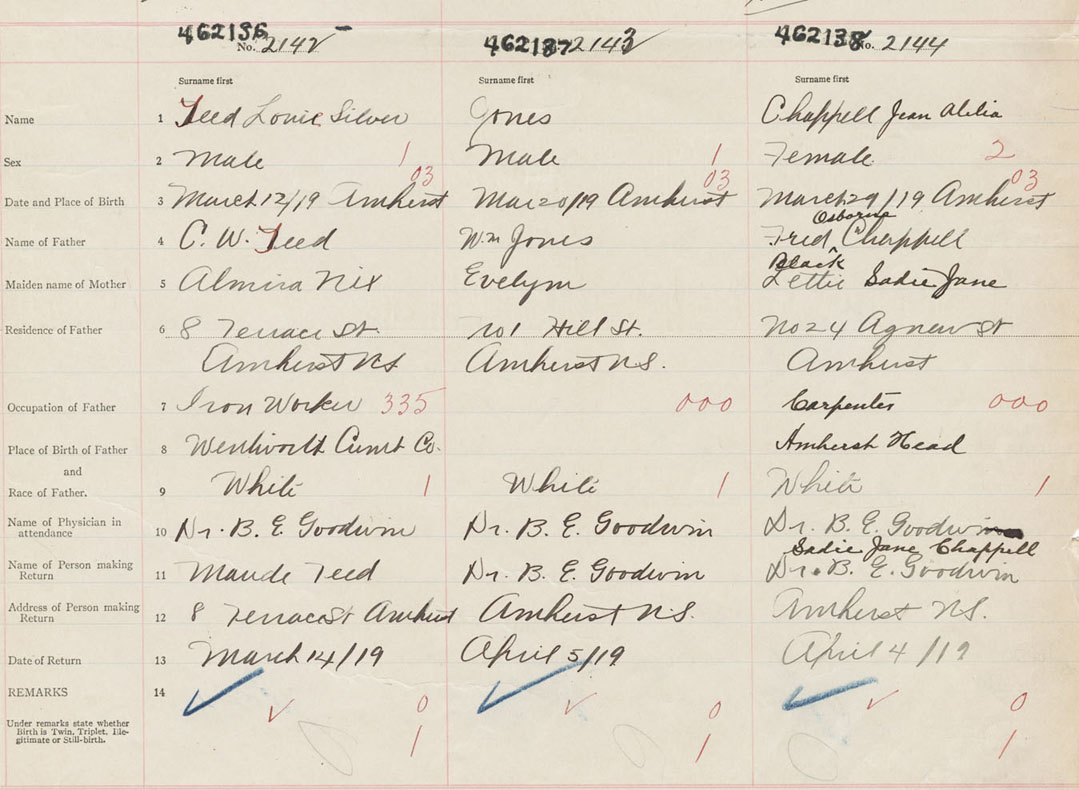 462136 462137 462138
No. 2142 2143 No. 2144
Surname first Surname first Surname first
Name 1 Teed Louie Silver Jones Chappell Jean Alilia
Sex 2 Male 1 Male 1 Female 2
03 03 03
Date and Place of Birth 3 March 12/19 Amherst Mar 20/19 Amherst March 29/19 Amherst
Osborne
Name of Father 4 C. W. Teed Wm Jones Fred ^ Chappell
Black
Maiden name of Mother 5 Almira Nix Evelym Lettie Sadie Jane
Residence of Father 6 8 Terrace St. No 1 Hill St. No 24 Agnew St
Amherst NS Amherst N.S. Amherst
Occupation of Father 7 Iron Worker 335 000 Carpenter 000
Place of Birth of Father 8 Wentworth Cumb Co. Amherst Head
and
Race of Father. 9 White 1 White 1 White 1
Name of Physician in attendance 10 Dr. B. E. Goodwin Dr. B. E. Goodwin Dr. B. E. Goodwin
Sadie Jane Chappell
Name of Person making Return 11 Maude Teed Dr. B. E. Goodwin Dr. B. E. Goodwin
Address of Person making Return 12 8 Terrace St Amherst Amherst N.S. Amherst N.S.
Date of Return 13 March 14/19 April 5/19 April 4/19
REMARKS 14 0 0 0
Under remarks state whether
Birth is Twin, Triplet, Ille-
gitimate or Still-birth.
1 1 1